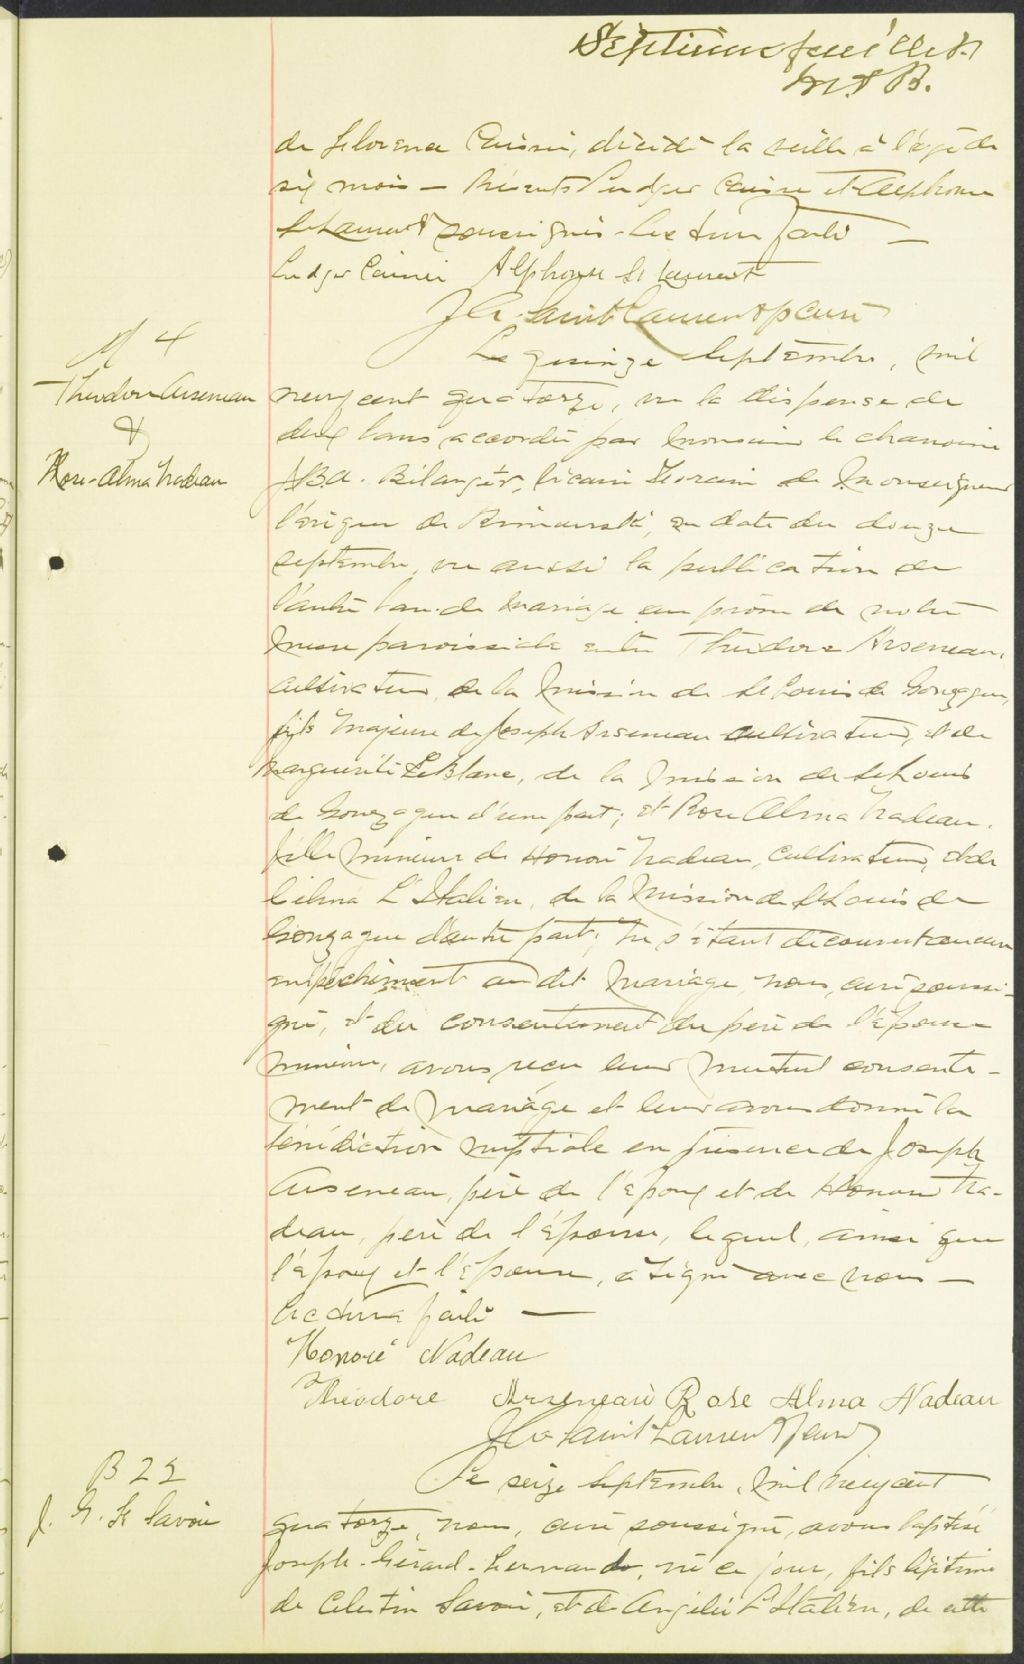 Septième feuillet.
de Florence décédé la veille à l'âge de
six mois — Présents Ludger et Alphonse
St Laurent soussignés. Lecture faite —
Ludger Alphonse St Laurent
Saint Laurent ptre curé
M 4
Theodore Arseneau
&
Rose-Alma Nadeau
Le quinze septembre, mil
neuf cent quatorze, vu la dispense de
deux bans accordée par Monsieur le chanoine
Bélanger, Vicaire Forain de Monseigneur
l'évêque de Rimouski, en date du douze
septembre, vu aussi la publication de
l'autre ban de mariage au prône de notre
messe paroissiale entre Théodore Arseneau,
cultivateur, de la Mission de St Louis de Gonzague,
fils majeur de Joseph Arseneau cultivateur, et de
Marguerite LeBlanc, de la Mission de St Louis
de Gonzague d'une part; et Rose Alma Nadeau,
fille mineure de Honoré Nadeau, cultivateur, et de
L'Italien, de la Mission de St Louis de
Gonzague d'autre part; Ne s'étant découvert aucun
empêchement au dit mariage, nous, curé soussi-
gné, et du consentement du père de l'épouse
mineure, avons reçu leur mutuel consente-
ment de mariage et leur avons donné la
bénédiction nuptiale en présence de Joseph
Arseneau, père de l'époux et de Honoré Na-
deau, père de l'épouse, lequel, ainsi que
l'époux et l'épouse, a signé avec nous —
Lecture faite —
Honoré Nadeau
Théodore Arseneau Rose Alma Nadeau
Saint Laurent ptre curé
B 22
J. G. Savoie
Le seize septembre, mil neuf cent
quatorze, nous, curé soussigné, avons baptisé
Joseph-Gérard-Fernando, né ce jour, fils légitime
de Célestin Savoie, et de Angélie L'Italien, de cette